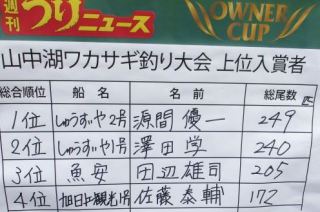 週刊つりニュース
OWNER CUP
山中湖ワカサギ釣り大会 上位入賞者
総合順位 船名 名前 総尾数
1位 しゅうすいや2号 源間優一 249匹
2位 しゅうすいや1号 澤田学 240
3位 魚安 田辺雄司 205
4位 旭日丘観光1号 佐藤泰輔 172